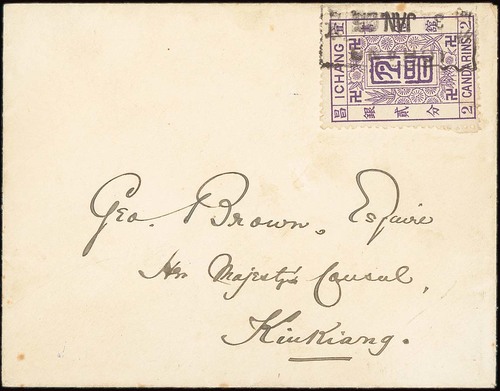 JAN
ICHANG
CANDARINS
2
2
分貳銀
昌
Geo. Brown, Esquire
Her Majesty's Consul,
Kiukiang.